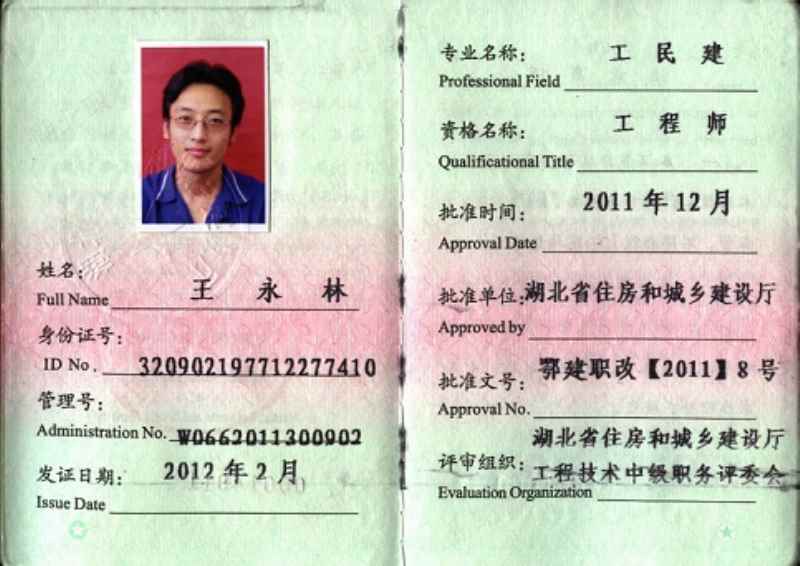 姓名:
王 永 林
Full Name
身份证号:
ID No. 320902197712277410
管理号:
Administration No. W0662011300902
发证日期: 2012 年 2 月
Issue Date
专业名称: 工 民 建
Professional Field
资格名称: 工 程 师
Qualificational Title
批准时间: 2011 年 12 月
Approval Date
批准单位:湖北省住房和城乡建设厅
Approved by
批准文号: 鄂建职改【2011】8 号
Approval No.
湖北省住房和城乡建设厅
评审组织: 工程技术中级职务评委会
Evaluation Organization